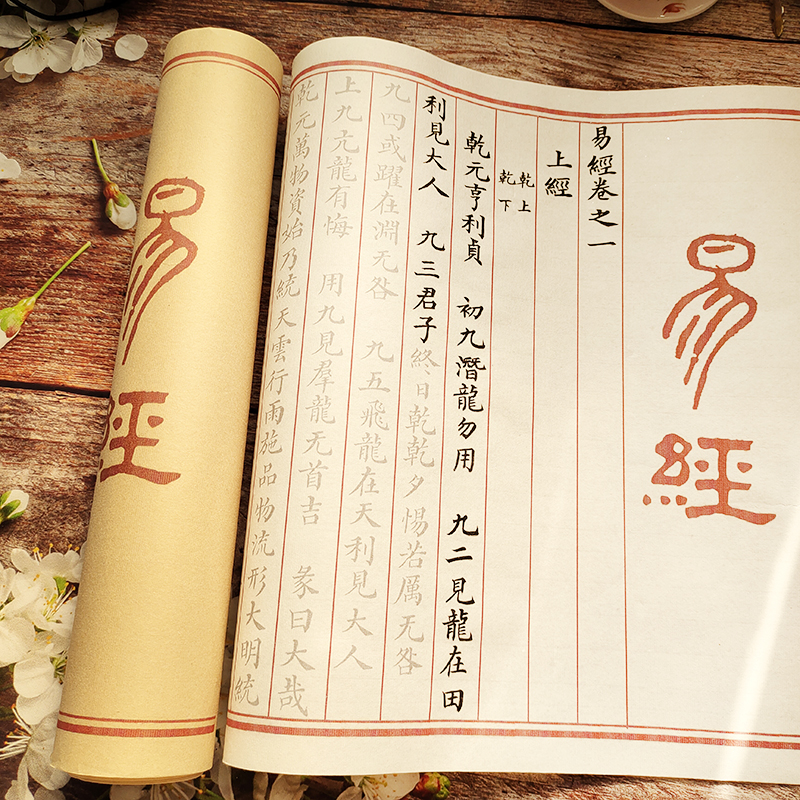 易經
易經卷之一
上經
乾上
乾下
乾元亨利貞 初九潛龍勿用 九二見龍在田
利見大人 九三君子終日乾乾夕惕若厲无咎
九四或躍在淵无咎 九五飛龍在天利見大人
上九亢龍有悔 用九見羣龍无首吉 彖曰大哉
乾元萬物資始乃統天雲行雨施品物流形大明統
易經